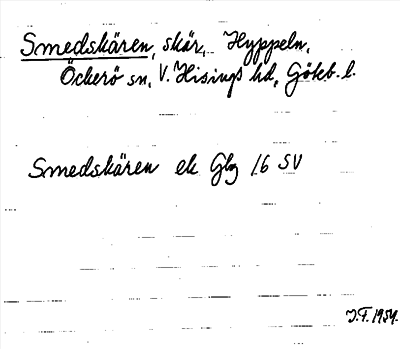 Smedskären, skär, Hyppeln,
Öckerö sn, V. Hisings hd, Göteb. l.
Smedskären ek Gbg 16 SV
J.F. 1954.